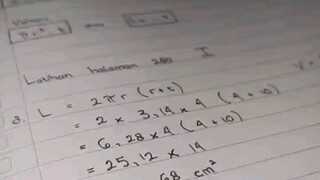 Latihan halaman 280 I
3. L = 2πr (r+t)
= 2 × 3,14 × 4 (4 + 10)
= 6,28 × 4 (4 + 10)
= 25,12 × 14
68 cm²
V =